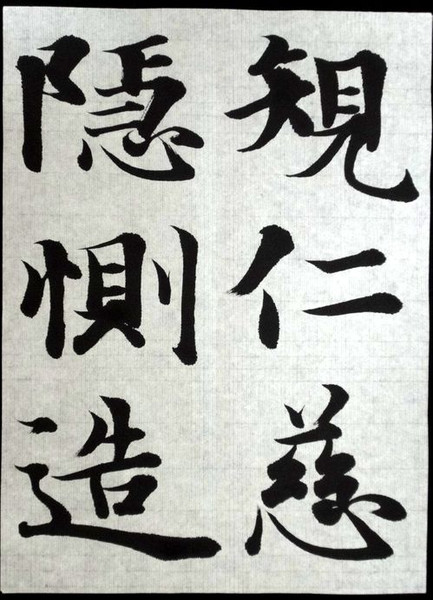 規仁慈
隱惻造